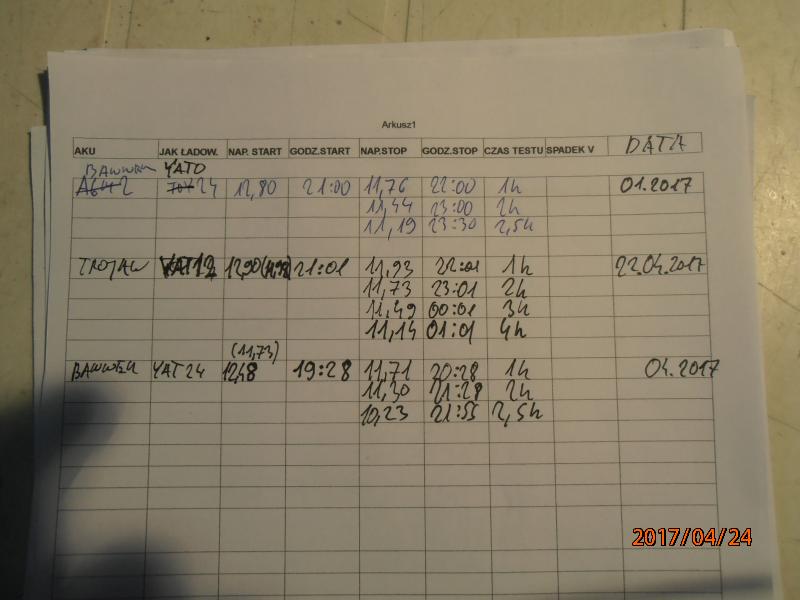 Arkusz1
AKU JAK ŁADOW. NAP. START GODZ.START NAP.STOP GODZ.STOP CZAS TESTU SPADEK V DATA
YATO
24 12,80 21:00 11,76 22:00 1h 01.2017
11,44 23:00 2h
11,19 23:30 2,5h
TROJAN 12,90 21:01 11,93 22:01 1h 22.04.2017
11,73 23:01 2h
11,49 00:01 3h
11,14 01:01 4h
(11,73)
YAT 24 12,48 19:28 11,71 20:28 1h 04.2017
11,30 21:28 2h
10,23 21:55 2,5h
2017/04/24